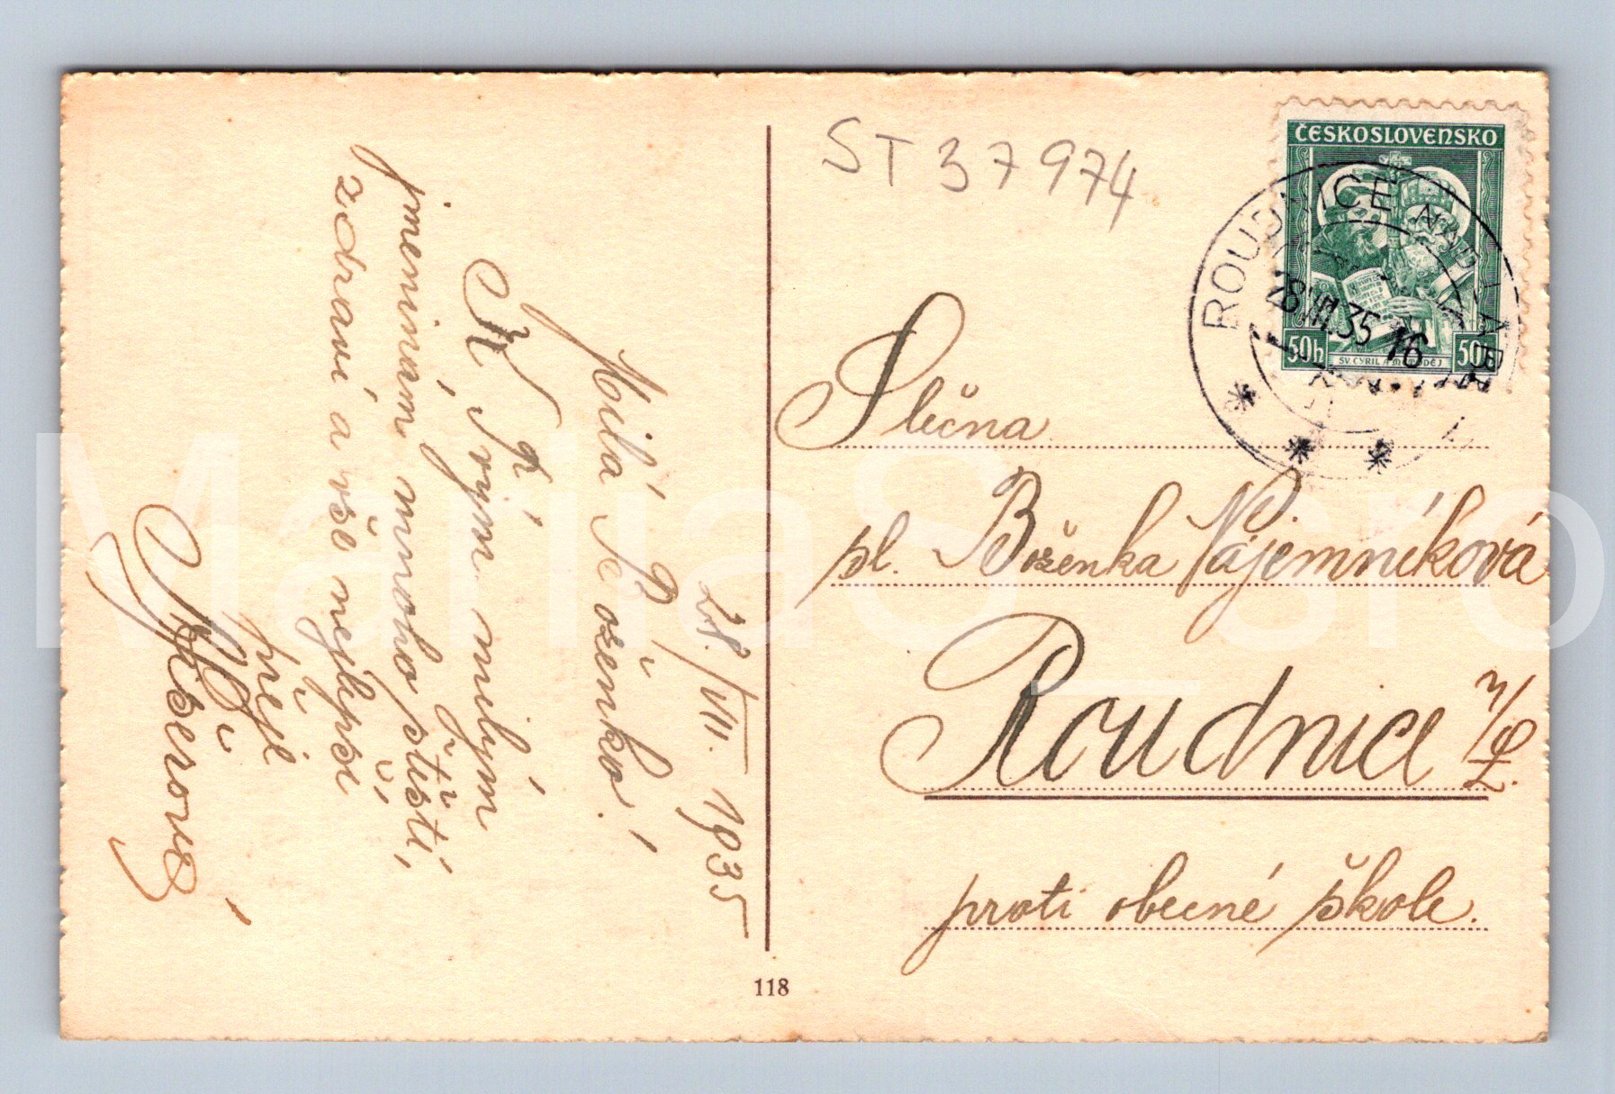 28./VII. 1935
Milá Boženko!
K Tvým milým
jmeninám mnoho štěstí,
zdraví a vše nejlepší
přeje
ST 37974
ČESKOSLOVENSKO
50h
50h
SV. CYRIL A METODĚJ
ROUDNICE NAD LAB.
28.VII.35 16
Slečna
pl. Boženka Pájemníková
Roudnice n/L.
proti obecné škole.
118
MaritaS_sro